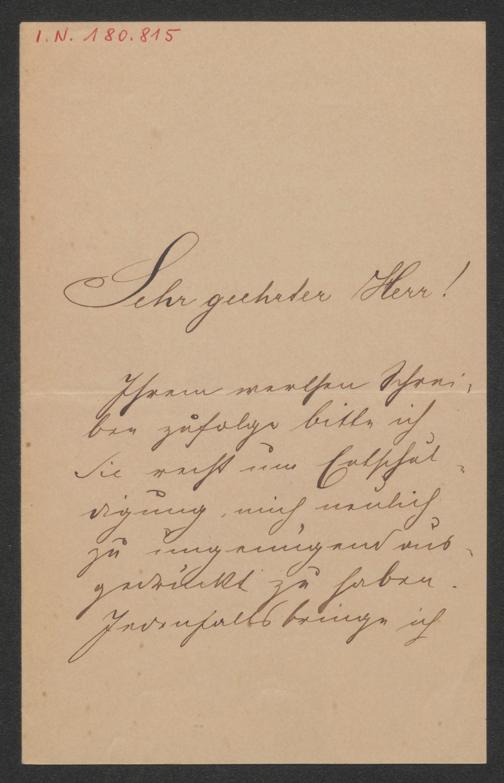 I.N. 180.815
Sehr geehrter Herr!
Ihrem werthen Schrei-
ben zufolge bitte ich
Sie recht um Entschul-
digung, mich neulich
zu ungenügend aus-
gedrückt zu haben.
Jedenfalls bringe ich